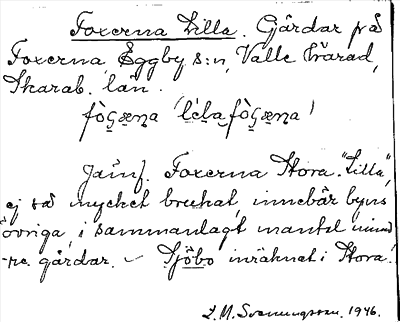 Foxerna Lilla. Gårdar på
Foxerna, Eggby s:n, Valle härad,
Skarab. län.
Jämf. Foxerna Stora. "Lilla",
ej så mycket brukat, innebär byns
övriga, i sammanlagt mantal mind-
re gårdar. – Sjöbo inräknat i Stora.
L. M. Svenungsson. 1946.